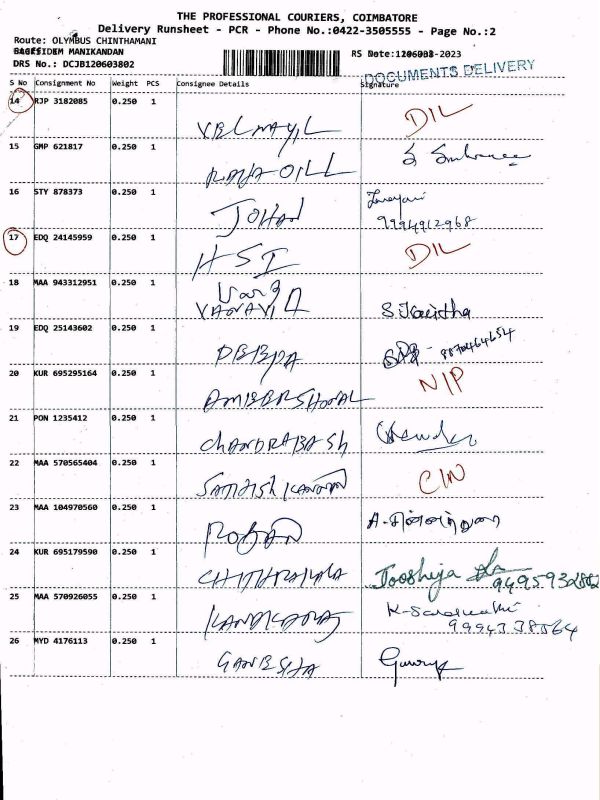 THE PROFESSIONAL COURIERS, COIMBATORE
Delivery Runsheet - PCR - Phone No.:0422-3505555 - Page No.:2
Route: OLYMBUS CHINTHAMANI
MANIKANDAN
RS Date: -2023
DRS No.: DCJB120603802
DOCUMENTS DELIVERY
S No Consignment No Weight PCS Consignee Details Signature
14 RJP 3182085 0.250 1 VELMAYIL DIL
15 GMP 621817 0.250 1 RAJA OILL
16 STY 878373 0.250 1 JOHAN
9994912968
17 EDQ 24145959 0.250 1 HSI DIL
18 MAA 943312951 0.250 1 VANAVIL S.Kavitha
19 EDQ 25143602 0.250 1 DEEPA
20 KUR 695295164 0.250 1 N/P
21 PON 1235412 0.250 1 CHANDRABASh
22 MAA 570565404 0.250 1 SATHISH KANNAN C/N
23 MAA 104970560 0.250 1 ROBAN
24 KUR 695179590 0.250 1 CHITHRAKALA
25 MAA 570926055 0.250 1 K-Saraswathi
26 MYD 4176113 0.250 1 GANESHA